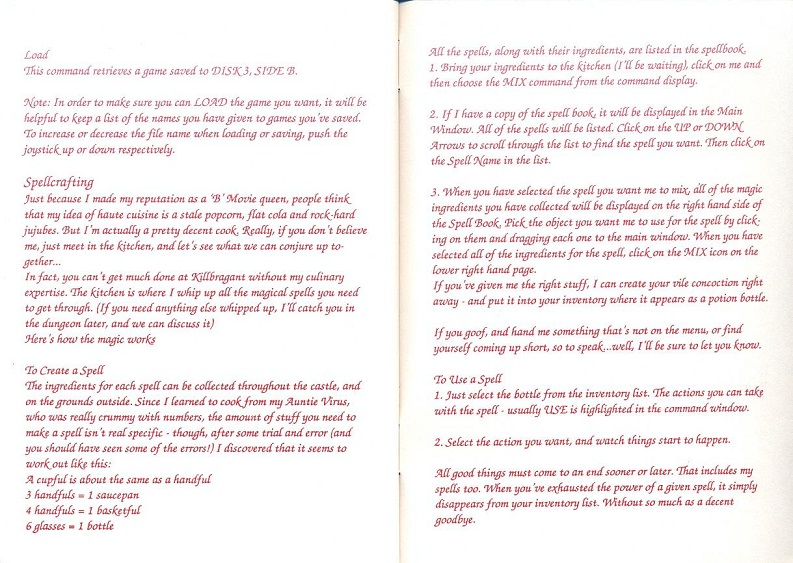 Load
This command retrieves a game saved to DISK 3, SIDE B.
Note: In order to make sure you can LOAD the game you want, it will be
helpful to keep a list of the names you have given to games you've saved.
To increase or decrease the file name when loading or saving, push the
joystick up or down respectively.
Spellcrafting
Just because I made my reputation as a 'B' Movie queen, people think
that my idea of haute cuisine is a stale popcorn, flat cola and rock-hard
jujubes. But I'm actually a pretty decent cook. Really, if you don't believe
me, just meet in the kitchen, and let's see what we can conjure up to-
gether...
In fact, you can't get much done at Killbragant without my culinary
expertise. The kitchen is where I whip up all the magical spells you need
to get through. (If you need anything else whipped up, I'll catch you in
the dungeon later, and we can discuss it)
Here's how the magic works
To Create a Spell
The ingredients for each spell can be collected throughout the castle, and
on the grounds outside. Since I learned to cook from my Auntie Virus,
who was really crummy with numbers, the amount of stuff you need to
make a spell isn't real specific - though, after some trial and error (and
you should have seen some of the errors!) I discovered that it seems to
work out like this:
A cupful is about the same as a handful
3 handfuls = 1 saucepan
4 handfuls = 1 basketful
6 glasses = 1 bottle
All the spells, along with their ingredients, are listed in the spellbook.
1. Bring your ingredients to the kitchen (I'll be waiting), click on me and
then choose the MIX command from the command display.
2. If I have a copy of the spell book, it will be displayed in the Main
Window. All of the spells will be listed. Click on the UP or DOWN
Arrows to scroll through the list to find the spell you want. Then click on
the Spell Name in the list.
3. When you have selected the spell you want me to mix, all of the magic
ingredients you have collected will be displayed on the right hand side of
the Spell Book. Pick the object you want me to use for the spell by click-
ing on them and dragging each one to the main window. When you have
selected all of the ingredients for the spell, click on the MIX icon on the
lower right hand page.
If you've given me the right stuff, I can create your vile concoction right
away - and put it into your inventory where it appears as a potion bottle.
If you goof, and hand me something that's not on the menu, or find
yourself coming up short, so to speak...well, I'll be sure to let you know.
To Use a Spell
1. Just select the bottle from the inventory list. The actions you can take
with the spell - usually USE is highlighted in the command window.
2. Select the action you want, and watch things start to happen.
All good things must come to an end sooner or later. That includes my
spells too. When you've exhausted the power of a given spell, it simply
disappears from your inventory list. Without so much as a decent
goodbye.